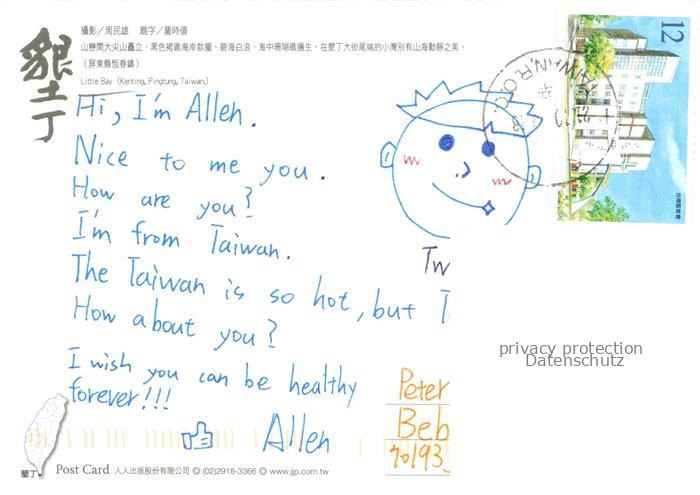 墾丁
攝影／周民雄 題字／羅時僖
山巒間大尖山矗立，黑色裙礁海岸款擺、碧海白浪、海中珊瑚礁遍生，在墾丁大街尾端的小灣別有山海動靜之美。
（屏東縣恆春鎮）
Little Bay (Kenting, Pingtung, Taiwan.)
Hi, I'm Allen.
Nice to me you.
How are you?
I'm from Taiwan.
The Taiwan is so hot, but I
How about you?
I wish you can be healthy
forever!!!
Allen
墾丁
Post Card 人人出版股份有限公司 ◎ (02)2918-3366 ◎ www.jjp.com.tw
12
TAIWAN, R.O.C.
Tw
privacy protection
Datenschutz
Peter
Beb
70193